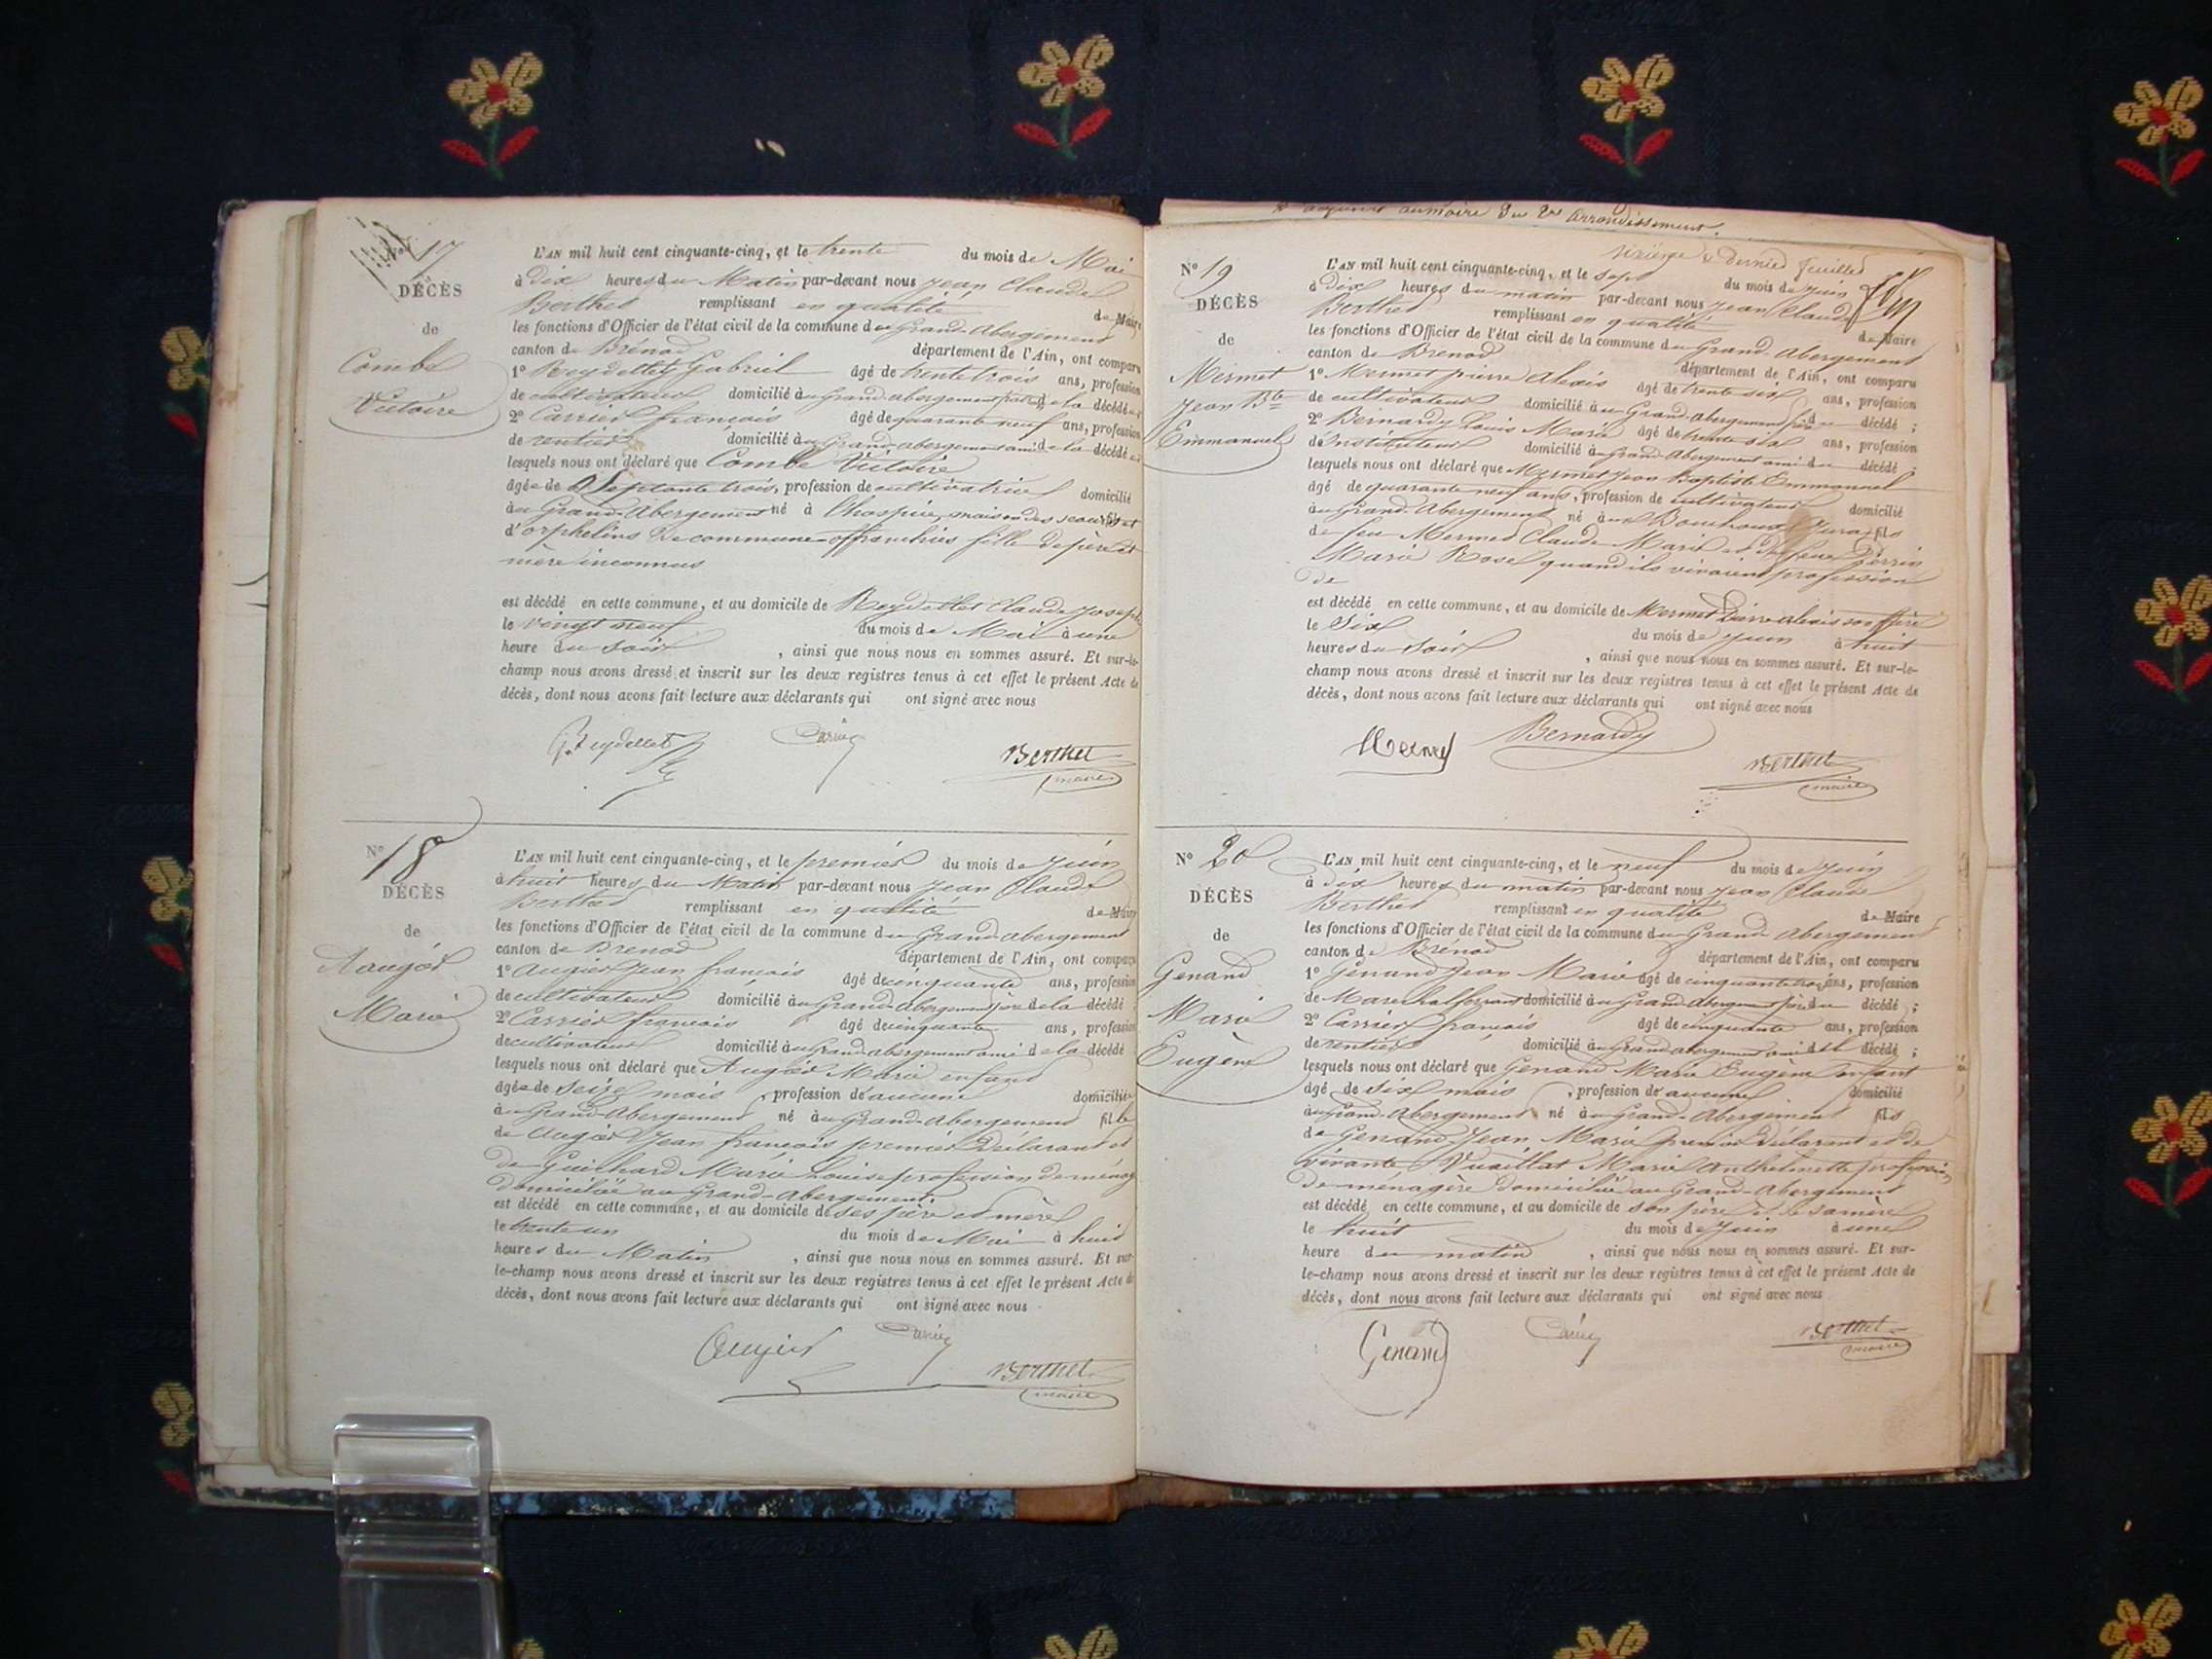 N° 17
DÉCÈS
de
Combe
Victoire
L'AN mil huit cent cinquante-cinq, et le trente du mois de Mai
à dix heures du Matin par-devant nous Jean Claude
Berthet remplissant en qualité de Maire
les fonctions d'Officier de l'état civil de la commune du Grand-Abergement
canton de Brénod département de l'Ain, ont comparu
1° Reydellet Gabriel âgé de trente trois ans, profession
de cultivateur domicilié à u Grand-abergement de la décédée
2° Carrier françois âgé de quarante neuf ans, profession
de rentier domicilié à u Grand-abergement ami de la décédée
lesquels nous ont déclaré que Combe Victoire
âgée de Septante trois, profession de cultivatrice domicilié
à u Grand-Abergement né à l'hospice, maison des secours et
d'orphelins de commune-affranchie fille de père et
mère inconnus
est décédé en cette commune, et au domicile de Reydellet Claude Joseph
le vingt neuf du mois de Mai à une
heure du soir, ainsi que nous nous en sommes assuré. Et sur-le-
champ nous avons dressé et inscrit sur les deux registres tenus à cet effet le présent Acte de
décès, dont nous avons fait lecture aux déclarants qui ont signé avec nous
G. Reydellet Carrier Berthet
maire
N° 18
DÉCÈS
de
Augier
Marie
L'AN mil huit cent cinquante-cinq, et le premier du mois de Juin
à huit heures du Matin par-devant nous Jean Claude
Berthet remplissant en qualité de Maire
les fonctions d'Officier de l'état civil de la commune du Grand-abergement
canton de Brenod département de l'Ain, ont comparu
1° Augier Jean françois âgé de cinquante ans, profession
de cultivateur domicilié à u Grand-Abergement père de la décédé
2° Carrier françois âgé de cinquante ans, profession
de cultivateur domicilié à u Grand-abergement ami de la décédé
lesquels nous ont déclaré que Augier Marie enfant
âgée de seize mois, profession de aucune domiciliée
à u Grand-Abergement né à u Grand-Abergement fille
de Augier Jean françois premier Déclarant et
de Guichard Marie Louise profession de ménag
domiciliée au Grand-Abergement.
est décédé en cette commune, et au domicile de ses père et mère
le trente un du mois de Mai à huit
heures du Matin, ainsi que nous nous en sommes assuré. Et sur-
le-champ nous avons dressé et inscrit sur les deux registres tenus à cet effet le présent Acte de
décès, dont nous avons fait lecture aux déclarants qui ont signé avec nous
Augier Carrier Berthet
maire
adjoint au maire du 2me Arrondissement.
sixième & dernier feuillet
N° 19
DÉCÈS
de
Mermet
Jean Bte
Emmanuel
L'AN mil huit cent cinquante-cinq, et le sept du mois de Juin
à dix heures du matin par-devant nous Jean Claude
Berthet remplissant en qualité de Maire
les fonctions d'Officier de l'état civil de la commune du Grand-Abergement
canton de Brenod département de l'Ain, ont comparu
1° Mermet pierre Alexis âgé de trente six ans, profession
de cultivateur domicilié à u Grand-Abergement du décédé ;
2° Bernardy Louis Marie âgé de trente six ans, profession
d'Instituteur domicilié à u Grand-Abergement ami du décédé ;
lesquels nous ont déclaré que Mermet Jean Baptiste Emmanuel
âgé de quarante neuf ans, profession de cultivateur domicilié
à u Grand-Abergement né à ux Bouchoux Jura fils
de feu Mermet Claude Marie et de feue Perrin
Marie Rose quand ils vivaient profession
de
est décédé en cette commune, et au domicile de Mermet Pierre alexis son frère
le Six du mois de Juin à huit
heures du Soir, ainsi que nous nous en sommes assuré. Et sur-le-
champ nous avons dressé et inscrit sur les deux registres tenus à cet effet le présent Acte de
décès, dont nous avons fait lecture aux déclarants qui ont signé avec nous
Mermet Bernardy Berthet
maire
N° 20
DÉCÈS
de
Genand
Marie
Eugène
L'AN mil huit cent cinquante-cinq, et le neuf du mois de Juin
à dix heures du matin par-devant nous Jean Claude
Berthet remplissant en qualité de Maire
les fonctions d'Officier de l'état civil de la commune du Grand-Abergement
canton de Brénod département de l'Ain, ont comparu
1° Genand Jean Marie âgé de cinquante trois ans, profession
de Marechal ferrant domicilié à u Grand-Abergement père du décédé ;
2° Carrier françois âgé de cinquante ans, profession
de rentier domicilié à u Grand abergement ami décédé ;
lesquels nous ont déclaré que Genand Marie Eugene enfant
âgé de six mois, profession de aucune domicilié
à u Grand-Abergement né à u Grand-Abergement fils
de Genand Jean Marie premier Déclarant et de
vivante Vuaillat Marie Anthelmette profession
de ménagère domiciliée au Grand-Abergement
est décédé en cette commune, et au domicile de son père et de sa mère
le huit du mois de Juin à une
heure du matin, ainsi que nous nous en sommes assuré. Et sur-
le-champ nous avons dressé et inscrit sur les deux registres tenus à cet effet le présent Acte de
décès, dont nous avons fait lecture aux déclarants qui ont signé avec nous
Genand Carrier Berthet
maire